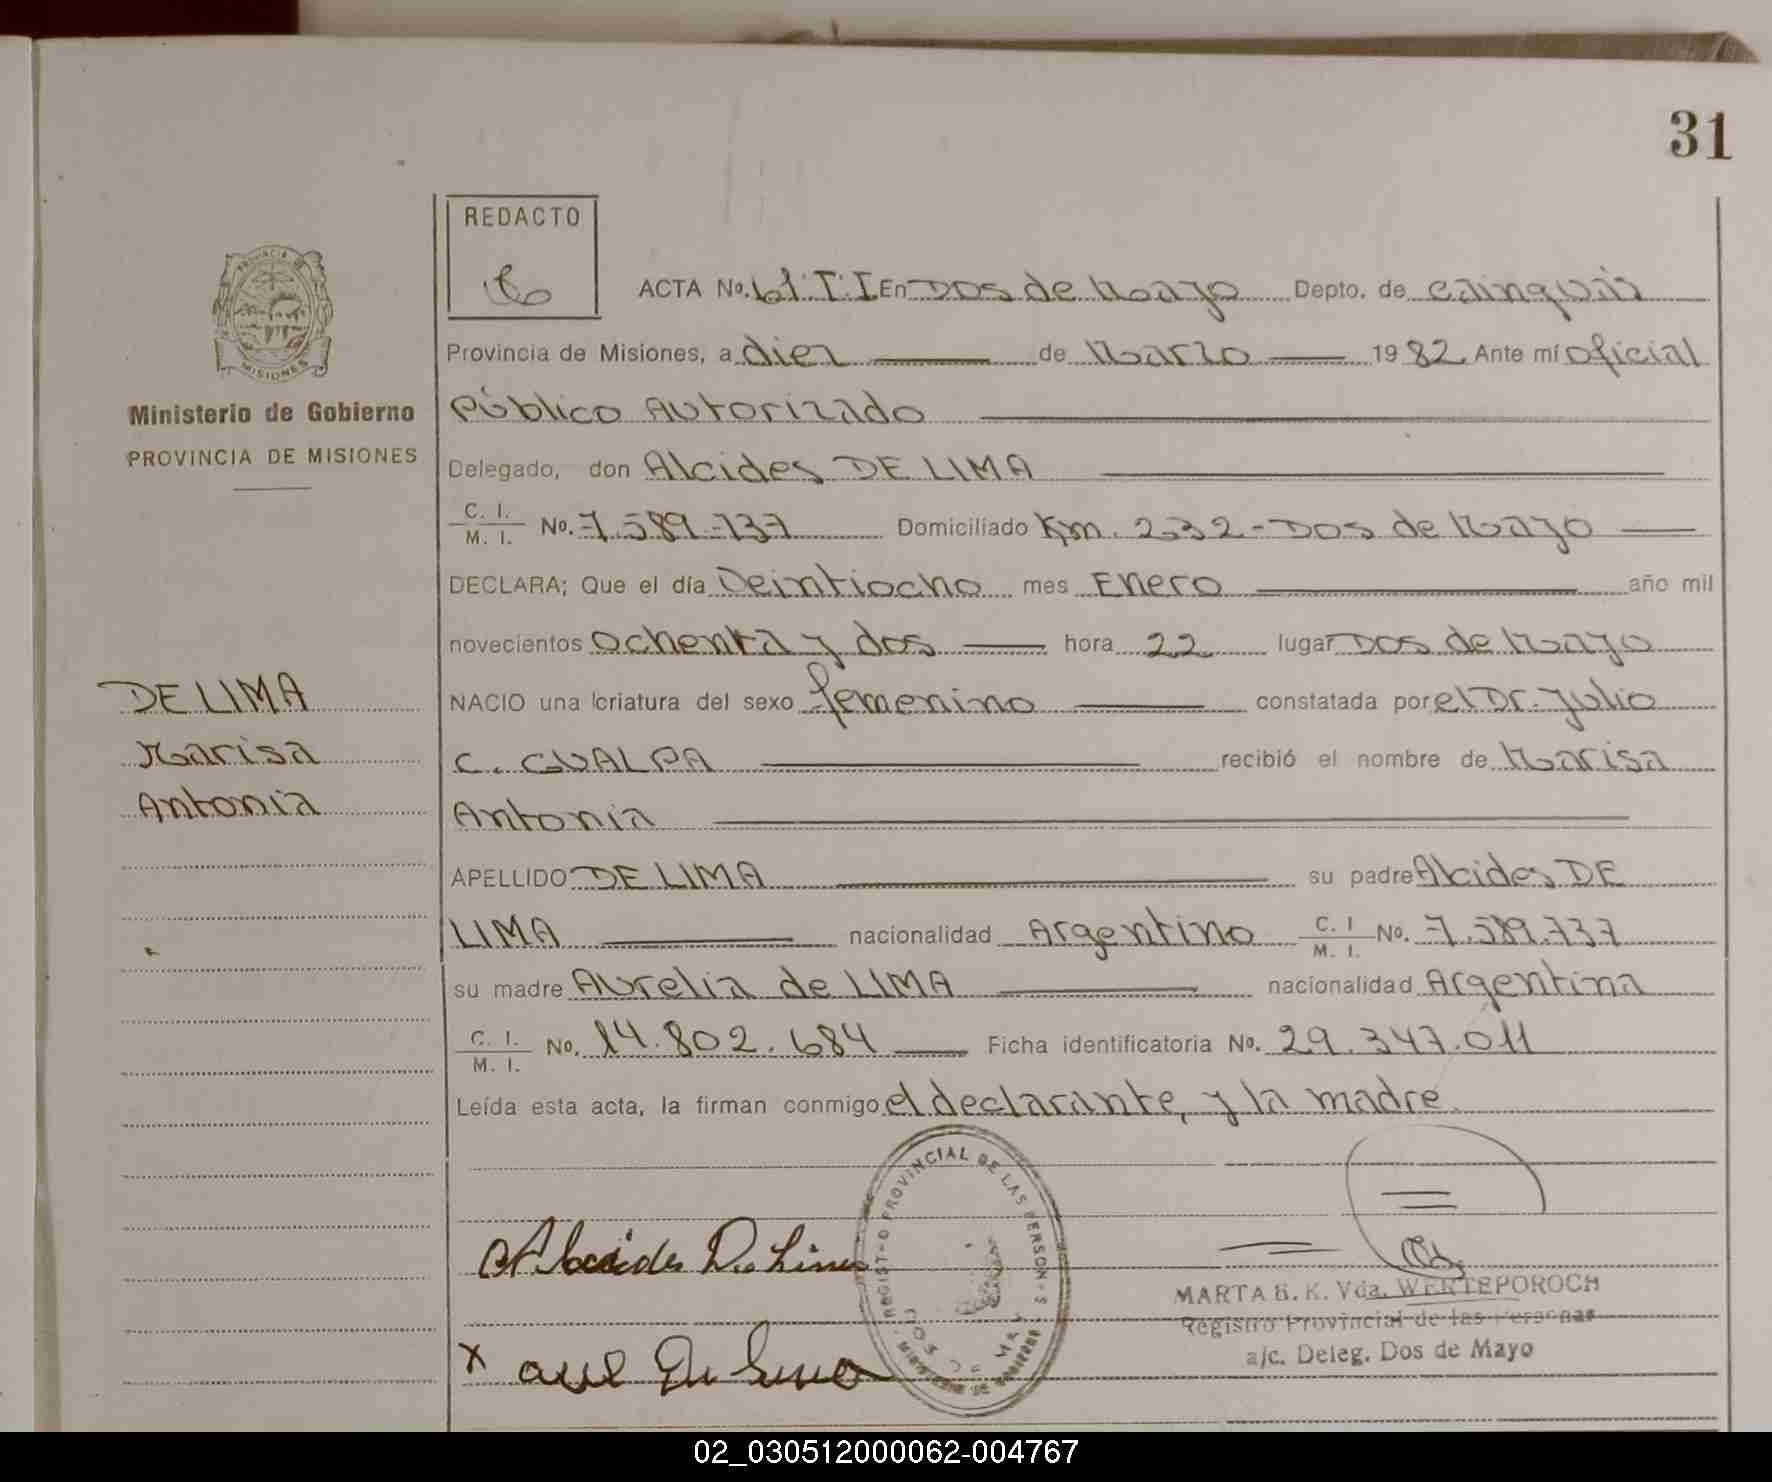 31
REDACTO
ACTA No. 61.T.I En Dos de Mayo Depto. de Cainguás
Provincia de Misiones, a diez de Marzo 19 82 Ante mí oficial
Público Autorizado
Delegado, don Alcides DE LIMA
C. I. M. I. No. 7.589.737 Domiciliado Km. 232 - Dos de Mayo
DECLARA; Que el día Veintiocho mes Enero año mil
novecientos ochenta y dos hora 22 lugar Dos de Mayo
NACIO una criatura del sexo femenino constatada por el Dr. Julio
C. GUALPA recibió el nombre de Marisa
Antonia
APELLIDO DE LIMA su padre Alcides DE
LIMA nacionalidad Argentino C. I M. I. No. 7.589.737
su madre Aurelia de LIMA nacionalidad Argentina
C. I. M. I. No. 14.802.684 Ficha identificatoria No. 29.347.011
Leída esta acta, la firman conmigo el declarante, y la madre.
PROVINCIA DE
MISIONES
Ministerio de Gobierno
PROVINCIA DE MISIONES
DE LIMA
Marisa
Antonia
Alcides De Lima
x
REGISTRO PROVINCIAL DE LAS PERSONAS
MINISTERIO DE GOBIERNO
DOS DE MAYO
MARTA B. K. Vda. WERTEPOROCH
Registro Provincial de las Personas
a/c. Deleg. Dos de Mayo
02_030512000062-004767